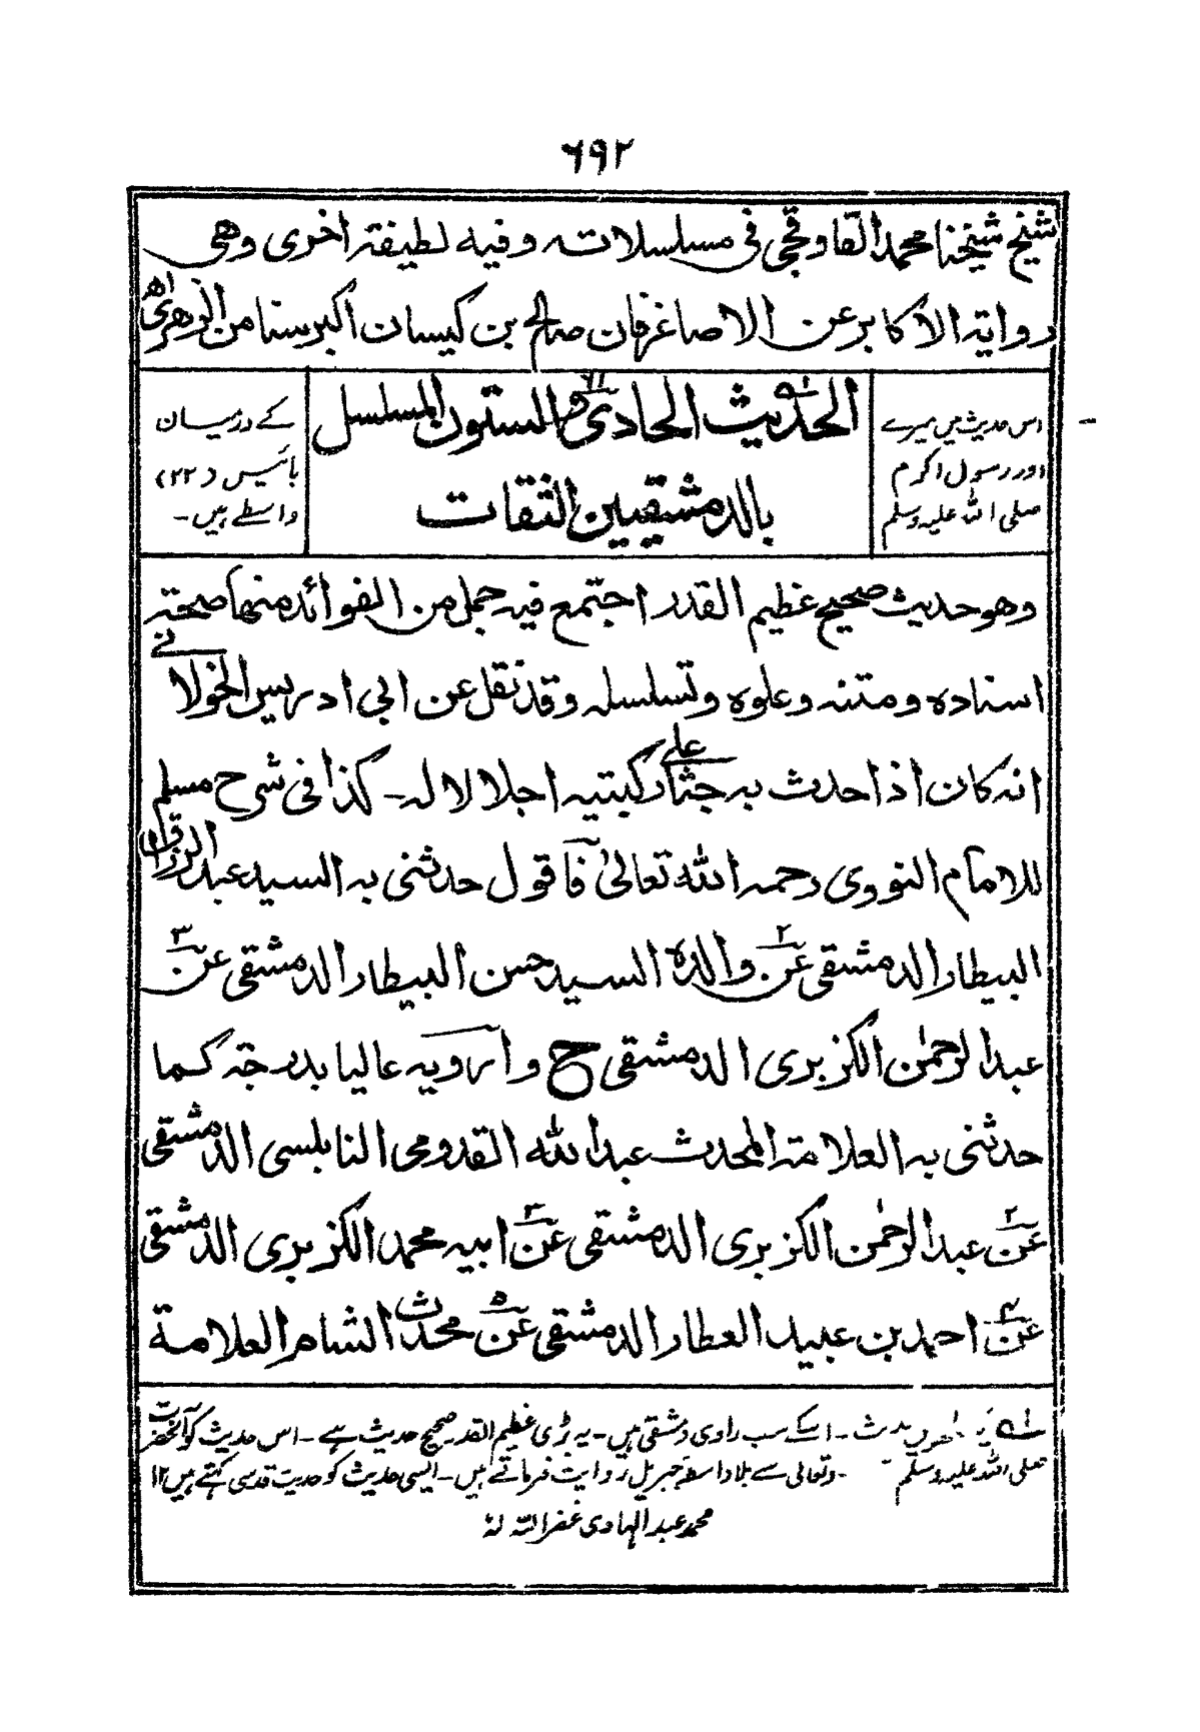 ٦٩٢
شيخ شيخنا محمد القاوقجى فى مسلسلاته وفيه لطيفة اخرى وهى
رواية الاكابر عن الاصاغر فان صالح بن كيسان اكبر سنا من الزهرى اھ
الحديث الحادى والستون المسلسل
بالدمشقيين الثقات
اس حدیث میں میرے
اور رسول اکرم
صلی اللہ علیہ وسلم
کے درمیان
بائیس (۲۲)
واسطے ہیں۔
وهو حديث صحيح عظيم القدر اجتمع فيه جمل من الفوائد منها صحة
اسناده ومتنه وعلوه وتسلسله وقد نقل عن ابى ادريس الخولانے
انه كان اذا حدث به جثا على ركبتيه اجلالا له۔ كذا فى شرح مسلم
للامام النووى رحمه الله تعالىٰ فاقول حدثنى به السيد عبد الرزاق
البيطار الدمشقى عن۲ والده السيد حسن البيطار الدمشقى عن۳
عبد الرحمٰن الكزبرى الدمشقى ح وارويه عاليا بدرجة كما
حدثنى به العلامة المحدث عبد الله القدومى النابلسى الدمشقى
عن۲ عبد الرحمٰن الكزبرى الدمشقى عن۳ ابيه محمد الكزبرى الدمشقى
عن۴ احمد بن عبيد العطار الدمشقى عن۵ محدث الشام العلامة
حدیث۔ اسکے سب راوی دمشقی ہیں۔ یہ بڑی عظیم القدر صحیح حدیث ہے۔ اس حدیث کو آنحضرت
صلی اللہ علیہ وسلم وتعالی سے بلا واسطہ جبریل روایت فرماتے ہیں۔ ایسی حدیث کو حدیث قدسی کہتے ہیں ۱۲
محمد عبد الہادی غفر اللہ لہٗ